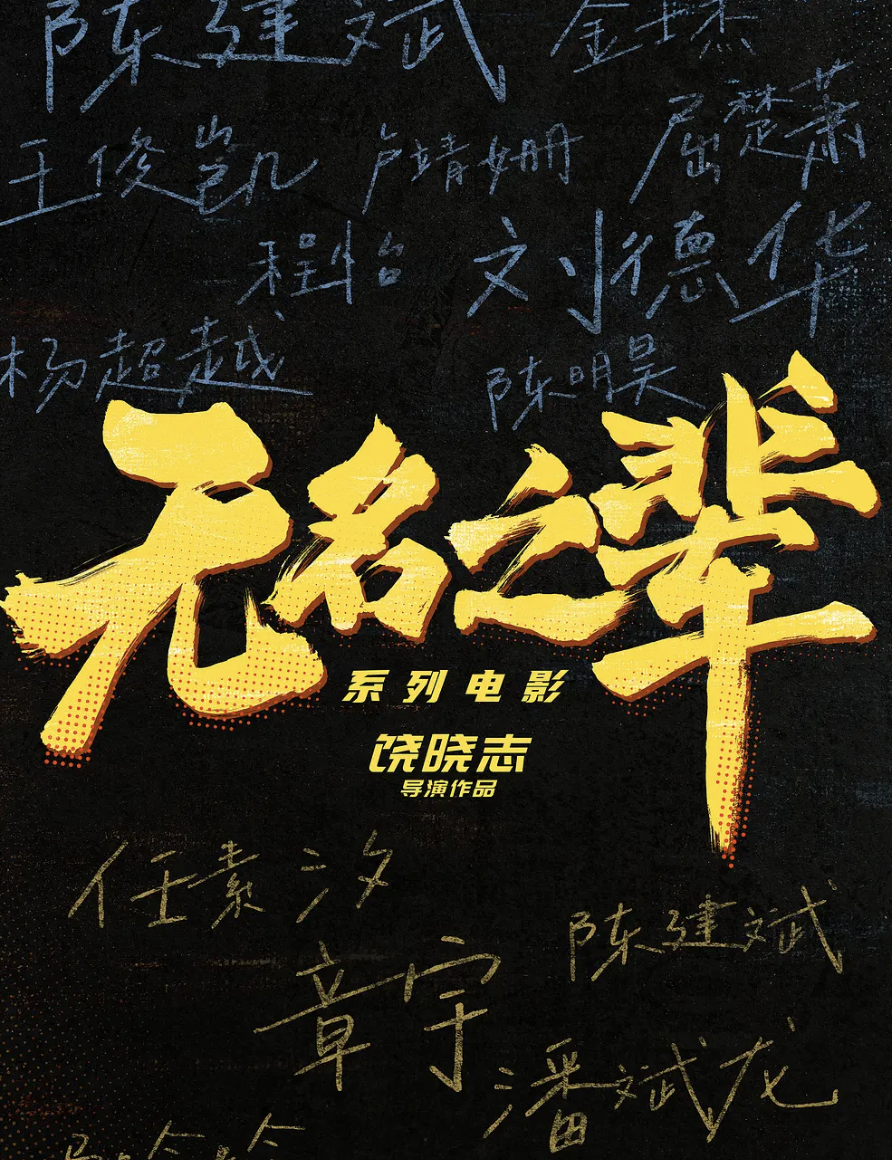 陈建斌 金士杰
王俊凱 卢靖姗 屈楚萧
程怡 刘德华
杨超越 陈明昊
无名之辈
系列电影
饶晓志
导演作品
任素汐
陈建斌
章宇
潘斌龙